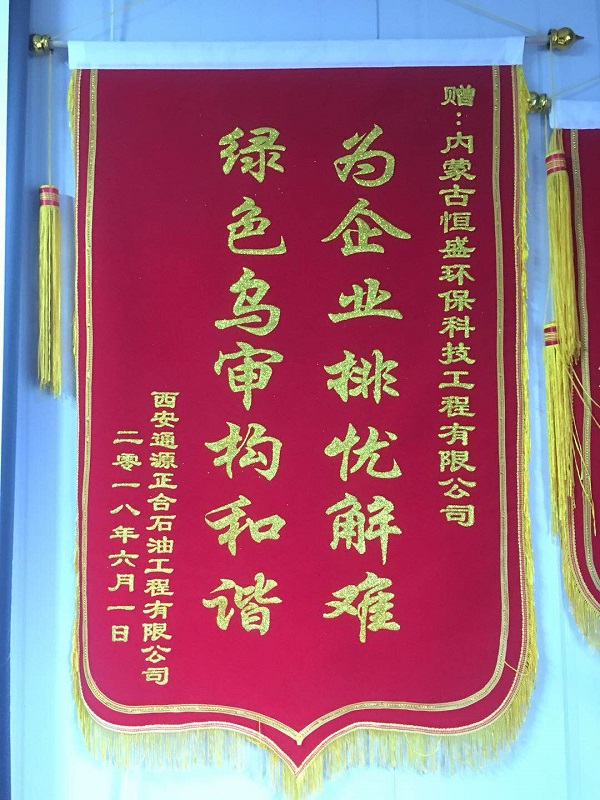 赠：内蒙古恒盛环保科技工程有限公司
为企业排忧解难
绿色乌审构和谐
西安通源正合石油工程有限公司
二零一八年六月一日